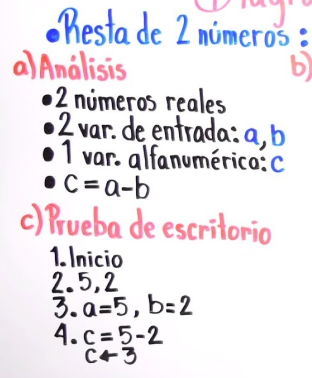 •Resta de 2 números:
a) Análisis
b)
•2 números reales
•2 var. de entrada: a, b
•1 var. alfanumérica: c
•c = a-b
c) Prueba de escritorio
1. Inicio
2. 5, 2
3. a=5, b=2
4. c = 5-2
c←3